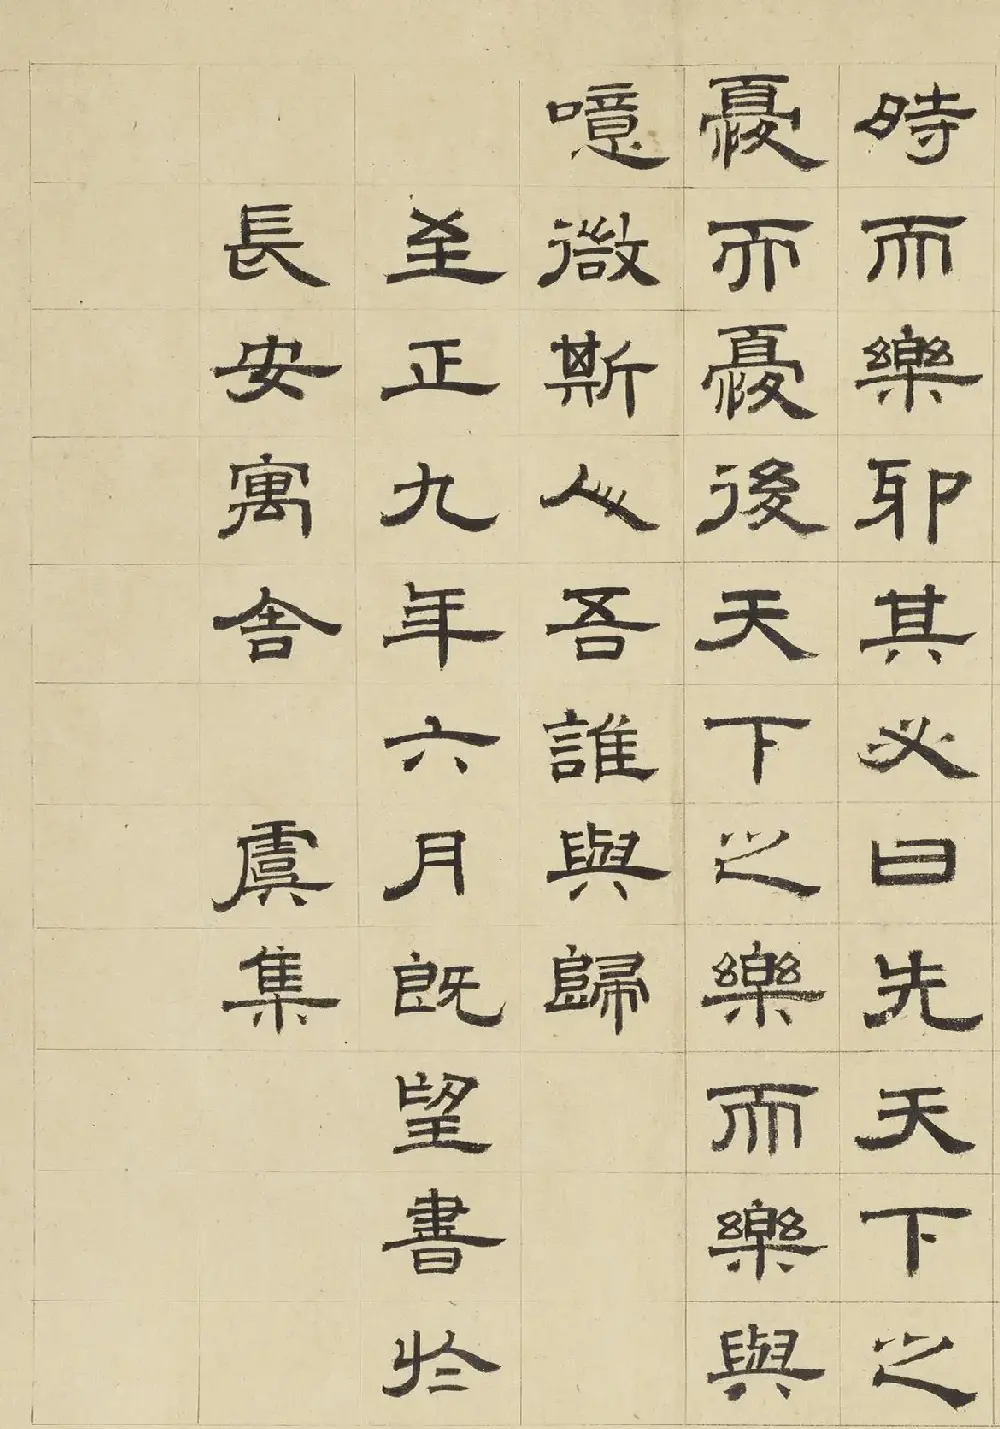 時而樂耶其必曰先天下之
憂而憂後天下之樂而樂與
噫微斯人吾誰與歸
至正九年六月既望書於
長安寓舍 虞集